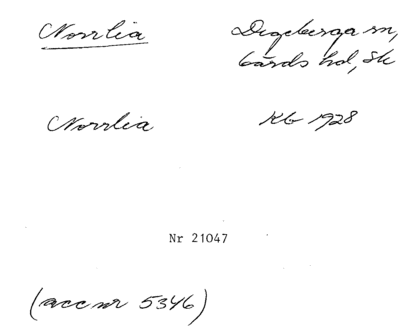 Norrlia Degeberga sn,
Gärds hd, Sk
Norrlia Kb 1928
Nr 21047
(acc nr 5346)